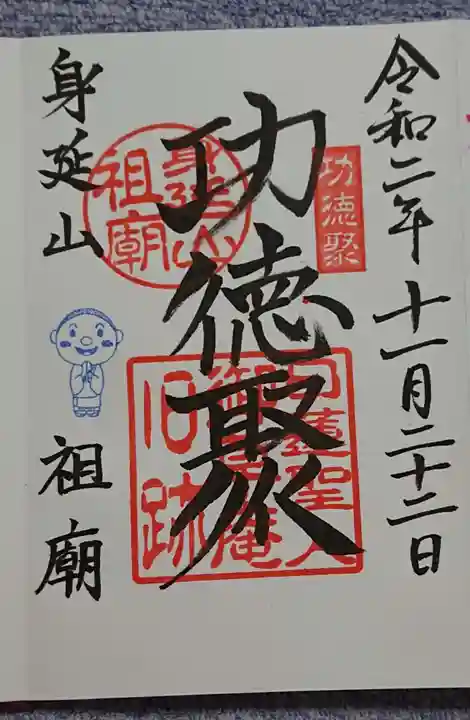 令和二年十一月二十二日
功徳聚
功徳聚
身延山
祖廟
身延山
祖廟
日蓮聖人
御草庵
旧跡